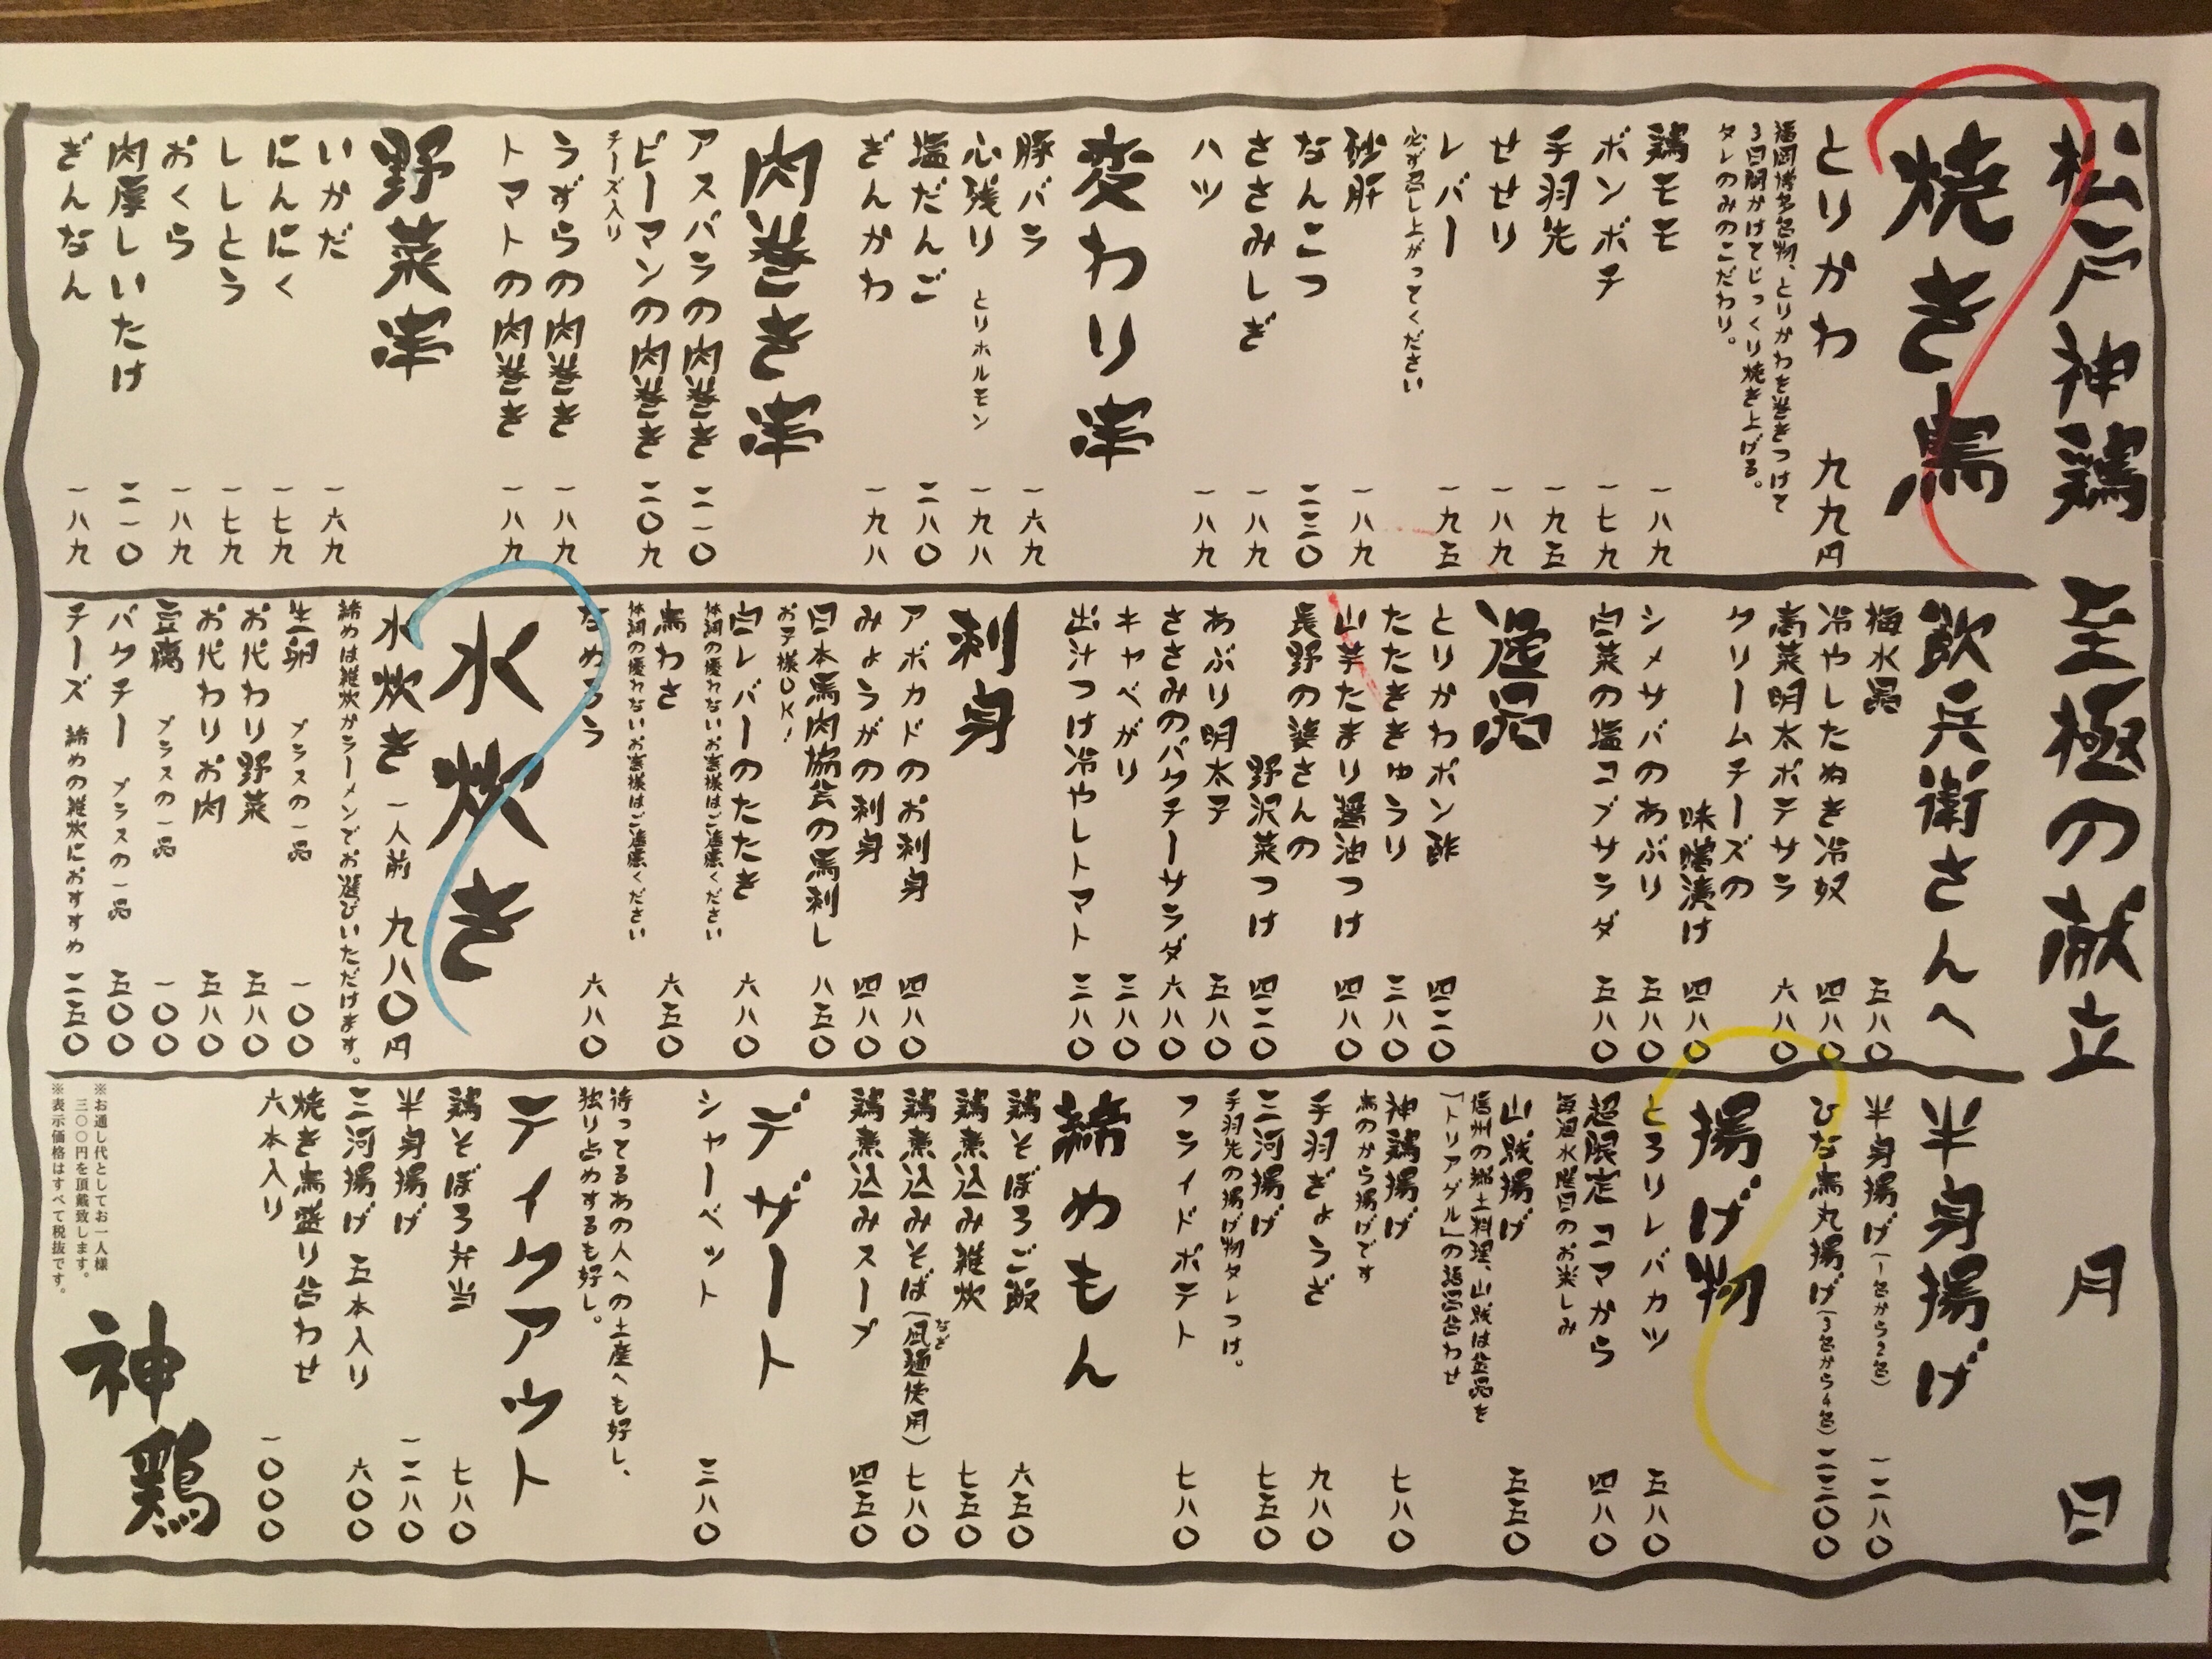 松戸神鶏 至極の献立 月 日
焼き鳥
とりかわ 九九円
福岡博多名物、とりかわを巻きつけて
3日間かけてじっくり焼き上げる。
タレのみのこだわり。
鶏モモ 一八九
ボンボチ 一七九
手羽先 一九五
せせり 一八九
レバー 一九五
必ず召し上がってください
砂肝 一八九
なんこつ 二三〇
ささみしぎ 一八九
ハツ 一八九
変わり串
豚バラ 一六九
心残り とりホルモン 一九八
塩だんご 二八〇
ぎんかわ 一九八
肉巻き串
アスパラの肉巻き 二一〇
ピーマンの肉巻き 二〇九
チーズ入り
うずらの肉巻き 一八九
トマトの肉巻き 一八九
野菜串
いかだ 一六九
にんにく 一七九
ししとう 一七九
おくら 一八九
肉厚しいたけ 二一〇
ぎんなん 一八九
飲兵衛さんへ
梅水晶 五八〇
冷やしたぬき冷奴 四八〇
高菜明太ポテサラ 六八〇
クリームチーズの
味噌漬け 四八〇
シメサバのあぶり 五八〇
白菜の塩コブサラダ 五八〇
逸品
とりかわポン酢 四二〇
たたききゅうり 三八〇
山芋たまり醤油つけ 四八〇
長野の婆さんの
野沢菜つけ 四二〇
あぶり明太子 五八〇
ささみのパクチーサラダ 六八〇
キャベがり 三八〇
出汁つけ冷やしトマト 三八〇
刺身
アボカドのお刺身 四八〇
みょうがの刺身 四八〇
日本馬肉協会の馬刺し 八五〇
お子様OK!
白レバーのたたき 六八〇
体調の優れないお客様はご遠慮ください
鳥わさ 六五〇
体調の優れないお客様はご遠慮ください
なめろう 六八〇
水炊き
水炊き 一人前 九八〇円
締めは雑炊かラーメンでお選びいただけます。
生卵 プラスの一品 一〇〇
お代わり野菜 五八〇
お代わりお肉 五八〇
豆腐 プラスの一品 一〇〇
パクチー プラスの一品 五〇〇
チーズ 締めの雑炊におすすめ 二五〇
半身揚げ
半身揚げ(1名から2名) 一二八〇
ひな鳥丸揚げ(3名から4名) 二三〇〇
揚げ物
とろりレバカツ 五八〇
超限定コマから 四八〇
毎週水曜日のお楽しみ
山賊揚げ 五五〇
信州の郷土料理、山賊は金品を
「トリアゲル」の語呂合わせ
神鶏揚げ 七八〇
鳥のから揚げです
手羽ぎょうざ 九八〇
三河揚げ 七五〇
手羽先の揚げ物タレつけ。
フライドポテト 七八〇
締めもん
鶏そぼろご飯 六五〇
鶏煮込み雑炊 七五〇
鶏煮込みそば(凪麺使用) 七八〇
なぎ
鶏煮込みスープ 四五〇
デザート
シャーベット 三八〇
テイクアウト
待ってるあの人への土産へも好し、
独り占めするも好し。
鶏そぼろ弁当 七八〇
半身揚げ 一二八〇
三河揚げ 五本入り 六〇〇
焼き鳥盛り合わせ
六本入り 一〇〇〇
※お通し代としてお一人様
三〇〇円を頂戴致します。
※表示価格はすべて税抜です。
神鶏